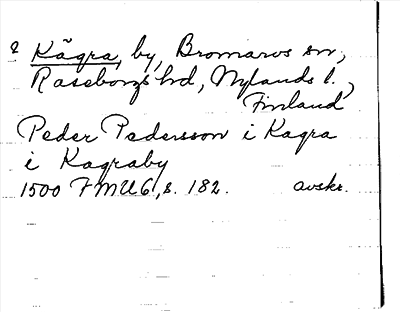 ? Kågra, by, Bromarvs sn,
Raseborgs hd, Nylands l.,
Finland
Peder Pedersson i Kagra
i Kagraby
1500 FMU 6, s. 182. avskr.